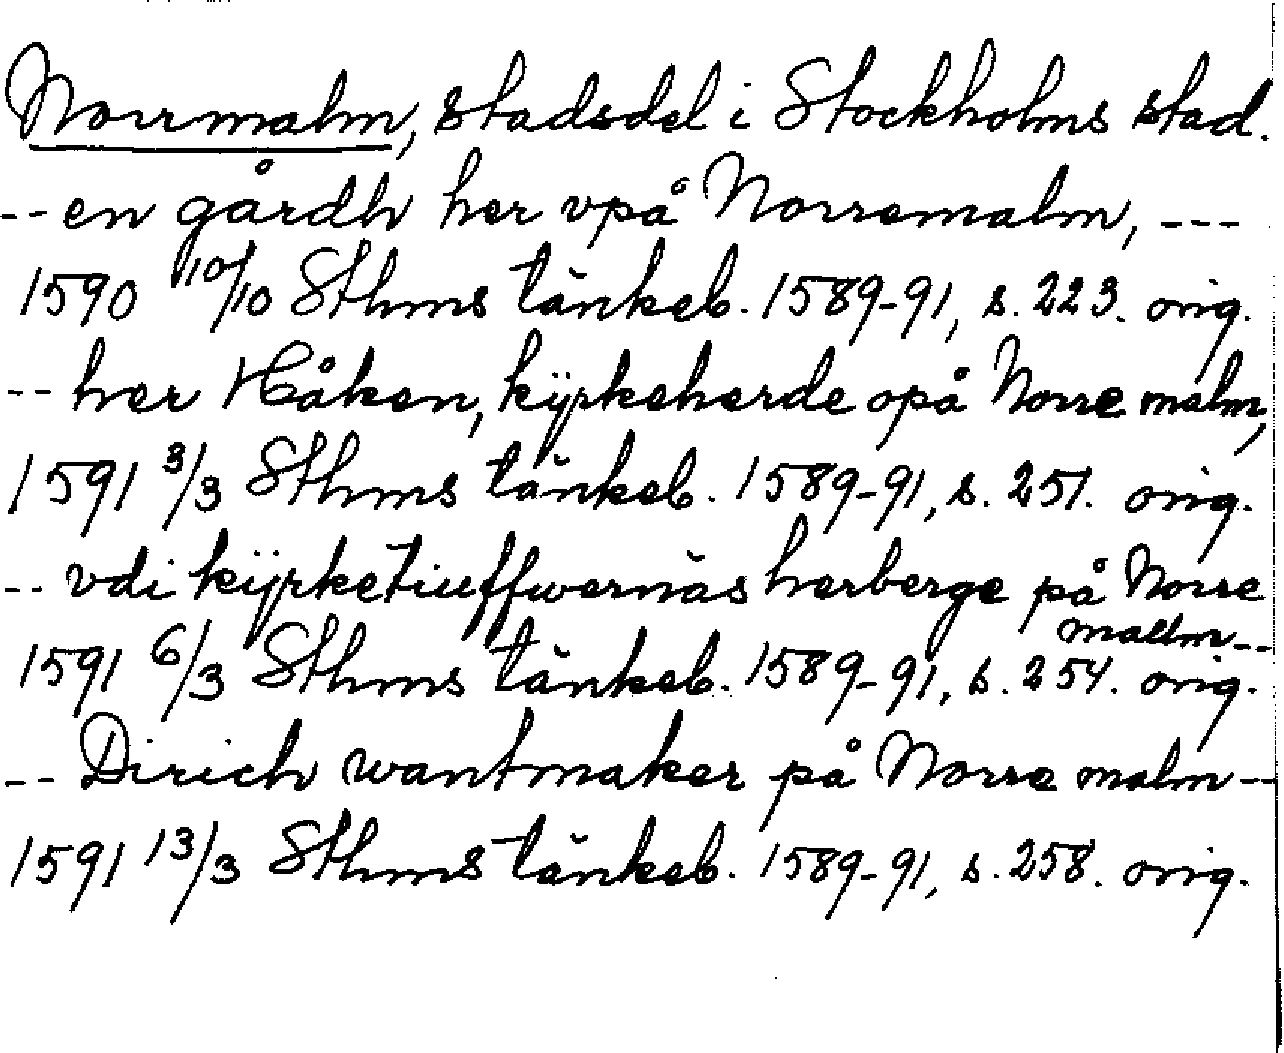 Norrmalm, stadsdel i Stockholms stad.
-- en gårdh her vpå Norremalm, ---
1590 10/10 Sthms tänkeb. 1589-91, s. 223. orig.
-- her Håken, kÿrkeherde opå Norre malm,
1591 3/3 Sthms tänkeb. 1589-91, s. 251. orig.
-- vdi kÿrketiuffwernäs herberge på Norre
mallm --
1591 6/3 Sthms tänkeb. 1589-91, s. 254. orig.
-- Dirich wantmaker på Norre malm --
1591 13/3 Sthms tänkeb. 1589-91, s. 258. orig.